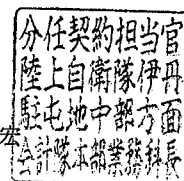 分任契約担当官
陸上自衛隊伊丹
駐屯地中部方面
会計隊本部業務科長
宏